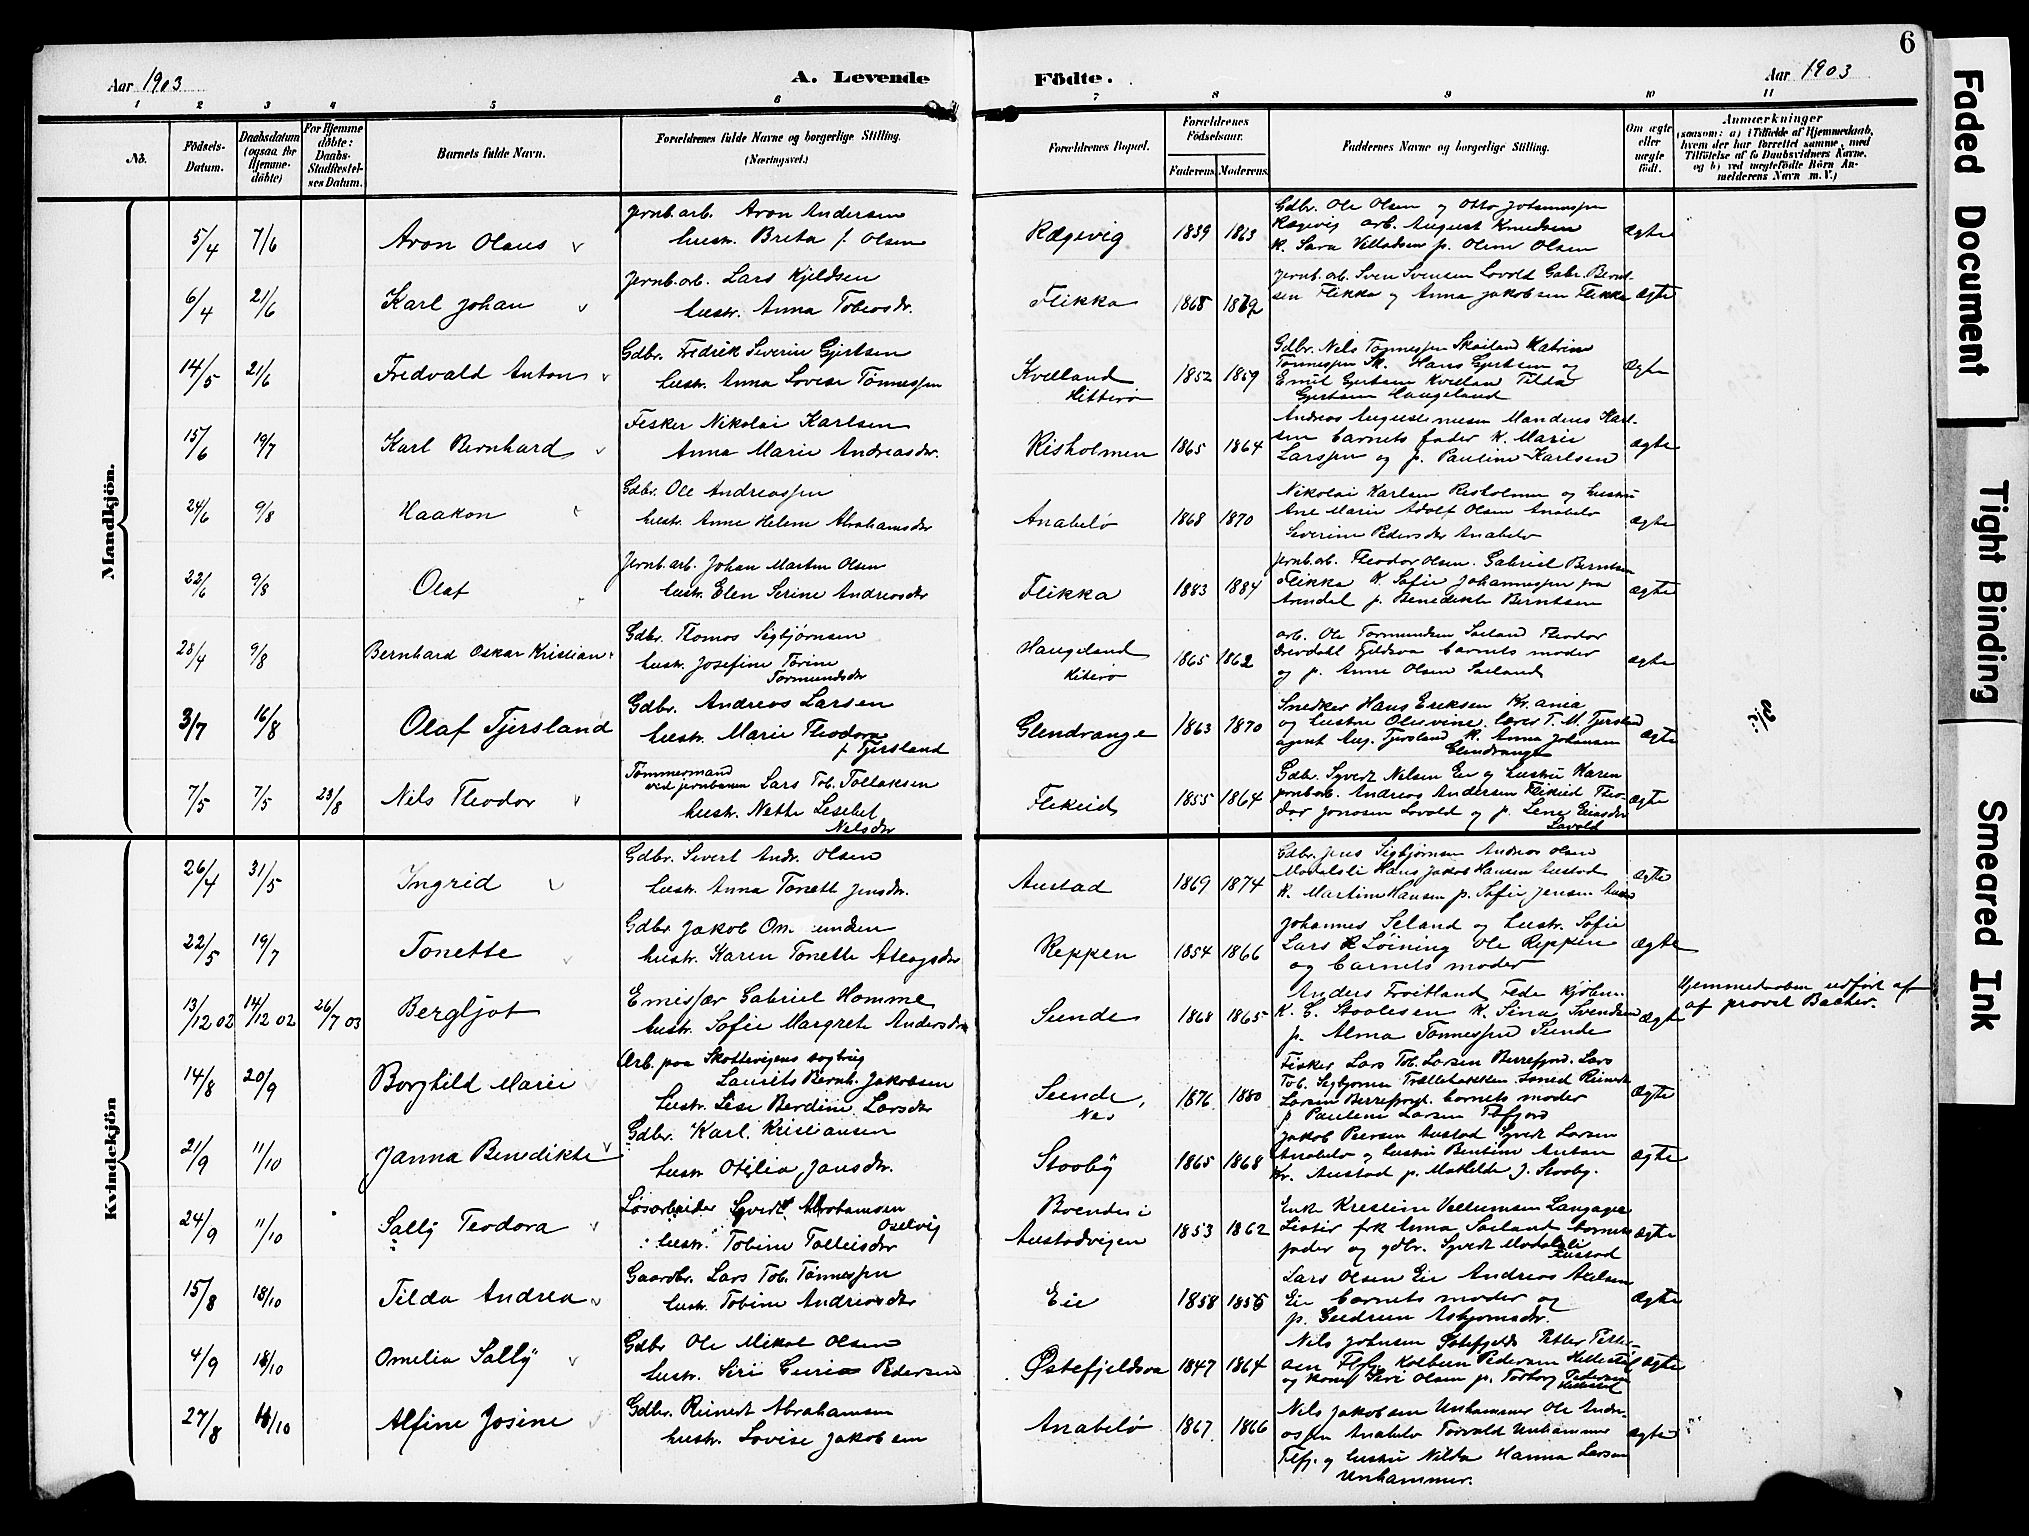 6
Aar 1903
A. Levende Fødte.
Aar 1903
1 2 3 4 5 6 7 8 9 10 11
No.
Födsels-Datum.
Daabsdatum (ogsaa för Hjemme-döbte)
For Hjemme döbte: Daabs-Stadfæstel-ses Datum.
Barnets fulde Navn.
Forældrenes fulde Navne og borgerlige Stilling. (Næringsvei.)
Forældrenes Bopæl.
Forældrenes Födselsaar.
Faderens
Moderens
Faddernes Navne og borgerlige Stilling.
Om ægte eller uægte födt.
Anmærkninger
(saasom: a) i Tilfælde af Hjemmedaab, hvem der har forrettet samme, med Tilföielse af to Daabsvidners Navne. og b) ved uægtefödte Börn An-melderens Navn m. V.)
Mandkjön.
5/4 7/6 Aron Olaus
Jernb.arb. Aron Andersen
hustr. Berta f. Olsen
1839 1863
Gdbr. Ole Olsen og Otto Johannessen
Rægevig arb. August Knudsen
K. Sara Villadsen p. Oline Olsen
Ægte
6/4 21/6 Karl Johan
Jernb.arb. Lars Kjeldsen
hustr. Anna Tobiasdr.
Flikka 1868 1872
Jernb.arb. Sven Svensen Lovold Gabr. Bernt-
sen Flikka og Anna Jakobsen Flikka
Ægte
14/5 21/6 Fredvald Anton
Gdbr. Fredrik Severin Gjertsen
hustr. Anna Lovise Tønnessen
Kvelland
Hitterø
1852 1859
Gdbr. Nils Tønnessen Skailand Katrine
Tønnessen Sk. Hans Gjertsen og
Emil Gjertsen Kvelland Tilda
Gjertsen Haugeland
Ægte
15/6 19/7 Karl Bernhard
Fisker Nikolai Karlsen
Anna Marie Andreasdr.
Risholmen 1865 1864
Andreas Augustinusen Mandius Karl-
sen barnets fader K. Marie
Larssen og p. Pauline Karlsen
Ægte
24/6 9/8 Haakon
Gdbr. Ole Andreassen
hustr. Anne Helene Abrahamsdr
Anabelø 1868 1870
Nikolai Karlsen Risholmen og hustru
Ane Marie Adolf Olsen Anabelø
Severine Pedersdr Anabelø
Ægte
22/6 9/8 Olaf
Jernb.arb. Johan Martin Olsen
hustr. Elen Serine Andreasdr
Flikka 1883 1884
Jernb.arb. Theodor Olsen. Gabriel Berntsen
Flikka K. Sofie Johannessen fra
Arendal p. Benedikte Berntsen
Ægte
28/4 9/8 Bernhard Oskar Kristian
Gdbr. Thomas Sigbjørnsen
hustr. Josefine Torine
Tormundsdr
Haugeland
Hiterø
1865 1862
arb. Ole Tormundsen Sæland Theodor
barnets moder
og p. Anne Olsen Sæland
Ægte
3/7 16/8 Olaf Tjersland
Gdbr. Andreas Larsen
hustr. Marie Theodora
f. Tjersland
Glendrange 1863 1870
Snedker Hans Eriksen Kr.ania
og hustru Olevine. lærer T. M. Tjersland
agent Aug. Tjersland K. Anna Johansen
Glendrange
Ægte
7/5 7/5 23/8 Nils Theodor
Tømmermand
ved jernbanen Lars Tob. Tollaksen
hustr. Nette Lisebet
Nelsdr
Flikeid 1855 1864
Gdbr. Syvert Nelsen Eie og hustru Karen
jernb.arb. Andreas Andersen Flikeid Theo-
dor Jonasen Lovold og p. Lene
Lovold
Ægte
Kvindekjön
26/4 31/5 Ingrid
Gdbr. Sivert Andr. Olsen
hustr. Anna Tonette Jensdr.
Austad 1869 1874
Gdbr. Jens Sigbjørnsen Andreas Olsen
Modalsli Hans Jakob Hansen Austad
K. Martine Hansen p. Sofie Jensen
Ægte
22/5 19/7 Tonette
Gdbr. Jakob Om unden
hustr. Karen Tonette Atlagsdr
Reppen 1854 1866
Johannes Seland og hustr. Sofie
Lars R Løining Ole Reppen
og barnets moder
Ægte
13/12 02 14/12 02 26/7 03 Bergljot
Emissær Gabriel Homme
hustr. Sofie Margrete Andersdr
Sunde 1868 1865
Anders Froitland Feda
K. G. Staalesen K. Sina Svendsen
p. Alma Tønnessen Sunde
Ægte
Hjemmedaaben udført af
af provst Bacher.
14/8 20/9 Borghild Marie
Arb. paa Skottevigens sagbrug
Laurits Bernh. Jakobsen
hustr. Lise Berdine Larsdr
Sunde,
Nes
1876 1880
Fisker Lars Tob. Larsen Berrefjord. Lars
Tob. Sigbjornsen
Larsen barnets moder
p Pauline Larsen
Ægte
21/9 11/10 Janna Benedikte
Gdbr. Karl Kristiansen
hustr Otilia Jansdr.
Stooby 1865 1868
Jakob Peersen Austad Syvert Larsen
Anabelø og hustru Bentine Anton
Kr. Austad p. Matilde J. Stooby.
Ægte
24/9 11/10 Sally Teodora
Løsarbeider Syvert Abrahamsen
Oselvig
hustr. Tobine Tolleisdr
Boende i
Austadvigen
1853 1862
Enke Kristine Vellumsen Langage
Lister frk Anna Sæland barnets
fader og gdbr. Syvert Modalsli
Austad
Ægte
15/8 18/10 Tilda Andrea
Gaardbr. Lars Tob. Tønnessen
hustr. Tobine Andreasdr
Eie 1858 1855
Lars Olsen Eie Andreas Axelsen
Eie barnets moder og
p. Gudrun Asbjornsdr.
Ægte
4/9 18/10 Omelia Sally
Gdbr Ole Mikal Olsen
hustr. Siri Guria Pedersen
Østefjeldsaa 1847 1864
Nils Johnsen
Kolbein Pedersen
og kone Siri Olsen p. Torborg Pedersen
Ægte
27/8 18/10 Alfine Josine
Gdbr. Reinert Abrahamsen
hustr. Lovise Jakobsen
Anabelø 1867 1866
Nils Jakobsen Unhammer Ole Andre-
assen Anabelø Torvald Unhammer
Flfj. og hustru Nilda Hanna Larsen
Unhammer.
Ægte
Faded Document
Tight Binding
Smeared Ink